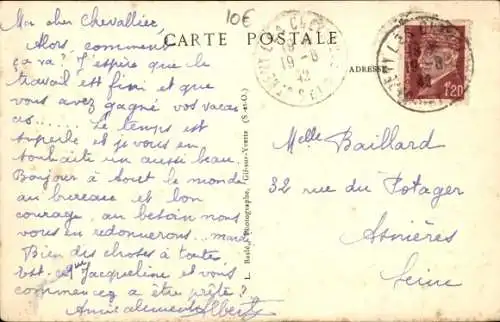 10€
CARTE POSTALE
ADRESSE
Mon cher Chevallier
Alors, comment
ça va? J'espère que le
travail est fini et que
vous avez gagné vos vacan
ces........ Le temps est
superbe et je vous en
souhaite un aussi beau.
Bonjour à tout le monde
au bureau et bon
courage, au besoin nous
vous en redonnerons...
Bien des choses à toute
Est-ce que Jacqueline et vous
commencez à être prête?
Amicalement Albert
L. Photographe, Gif-sur-Yvette (S.-et-O.)
19-8
42
1f20
Melle Baillard
32 rue du Potager
Asnières
Seine